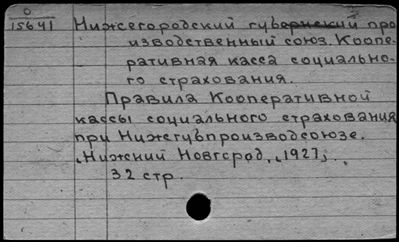 О
15641
Нижегородский губернский про
изводственный союз. Коопе-
ративная касса социально-
го страхования.
Правила Кооперативной
кассы социального страхования
при Нижгубпроизводсоюзе.
Нижний Новгород, 1927,
32 стр.